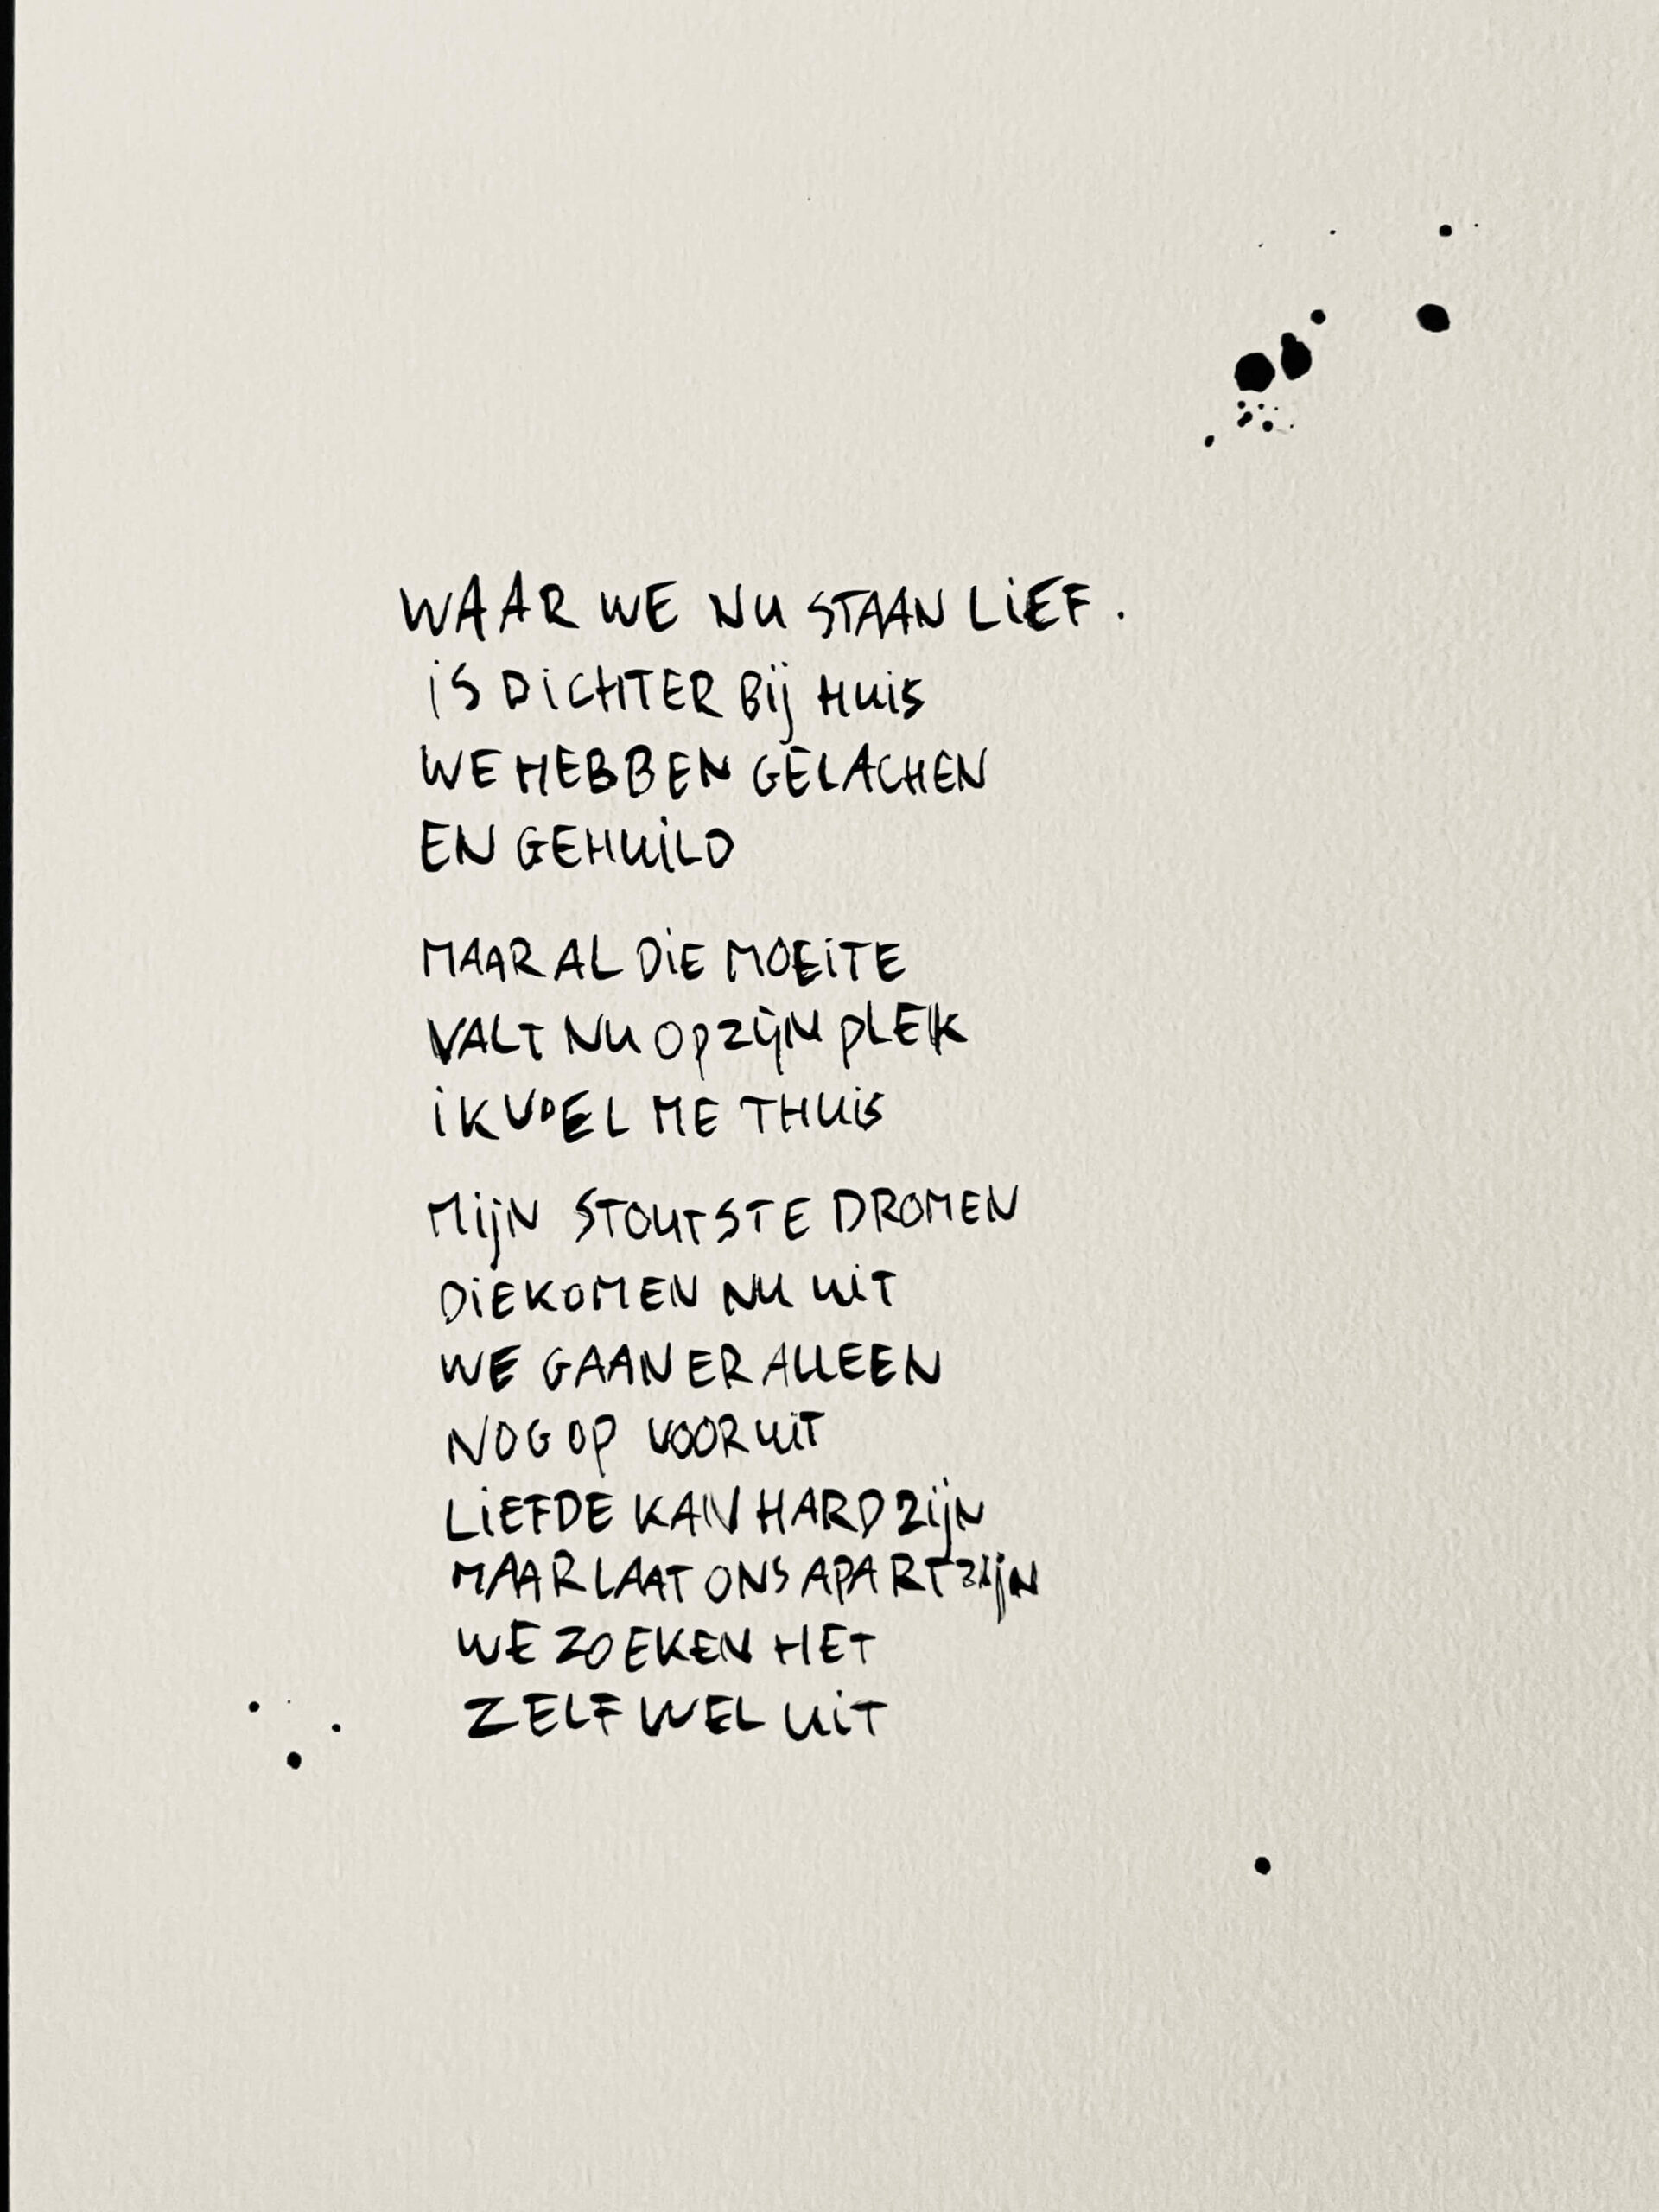 WAAR WE NU STAAN LiEF.
iS DiCHTER Bij HUiS
WE HEBBEN GELACHEN
EN GEHUiLD
MAAR AL DiE MOEiTE
VALT NU OP ZijN PLEK
iK VOEL ME THUiS
MijN STOUTSTE DROMEN
DiE KOMEN NU UiT
WE GAAN ER ALLEEN
NOG OP VOORUiT
LiEFDE KAN HARD ZijN
MAAR LAAT ONS APART ZijN
WE ZOEKEN HET
ZELF WEL UiT